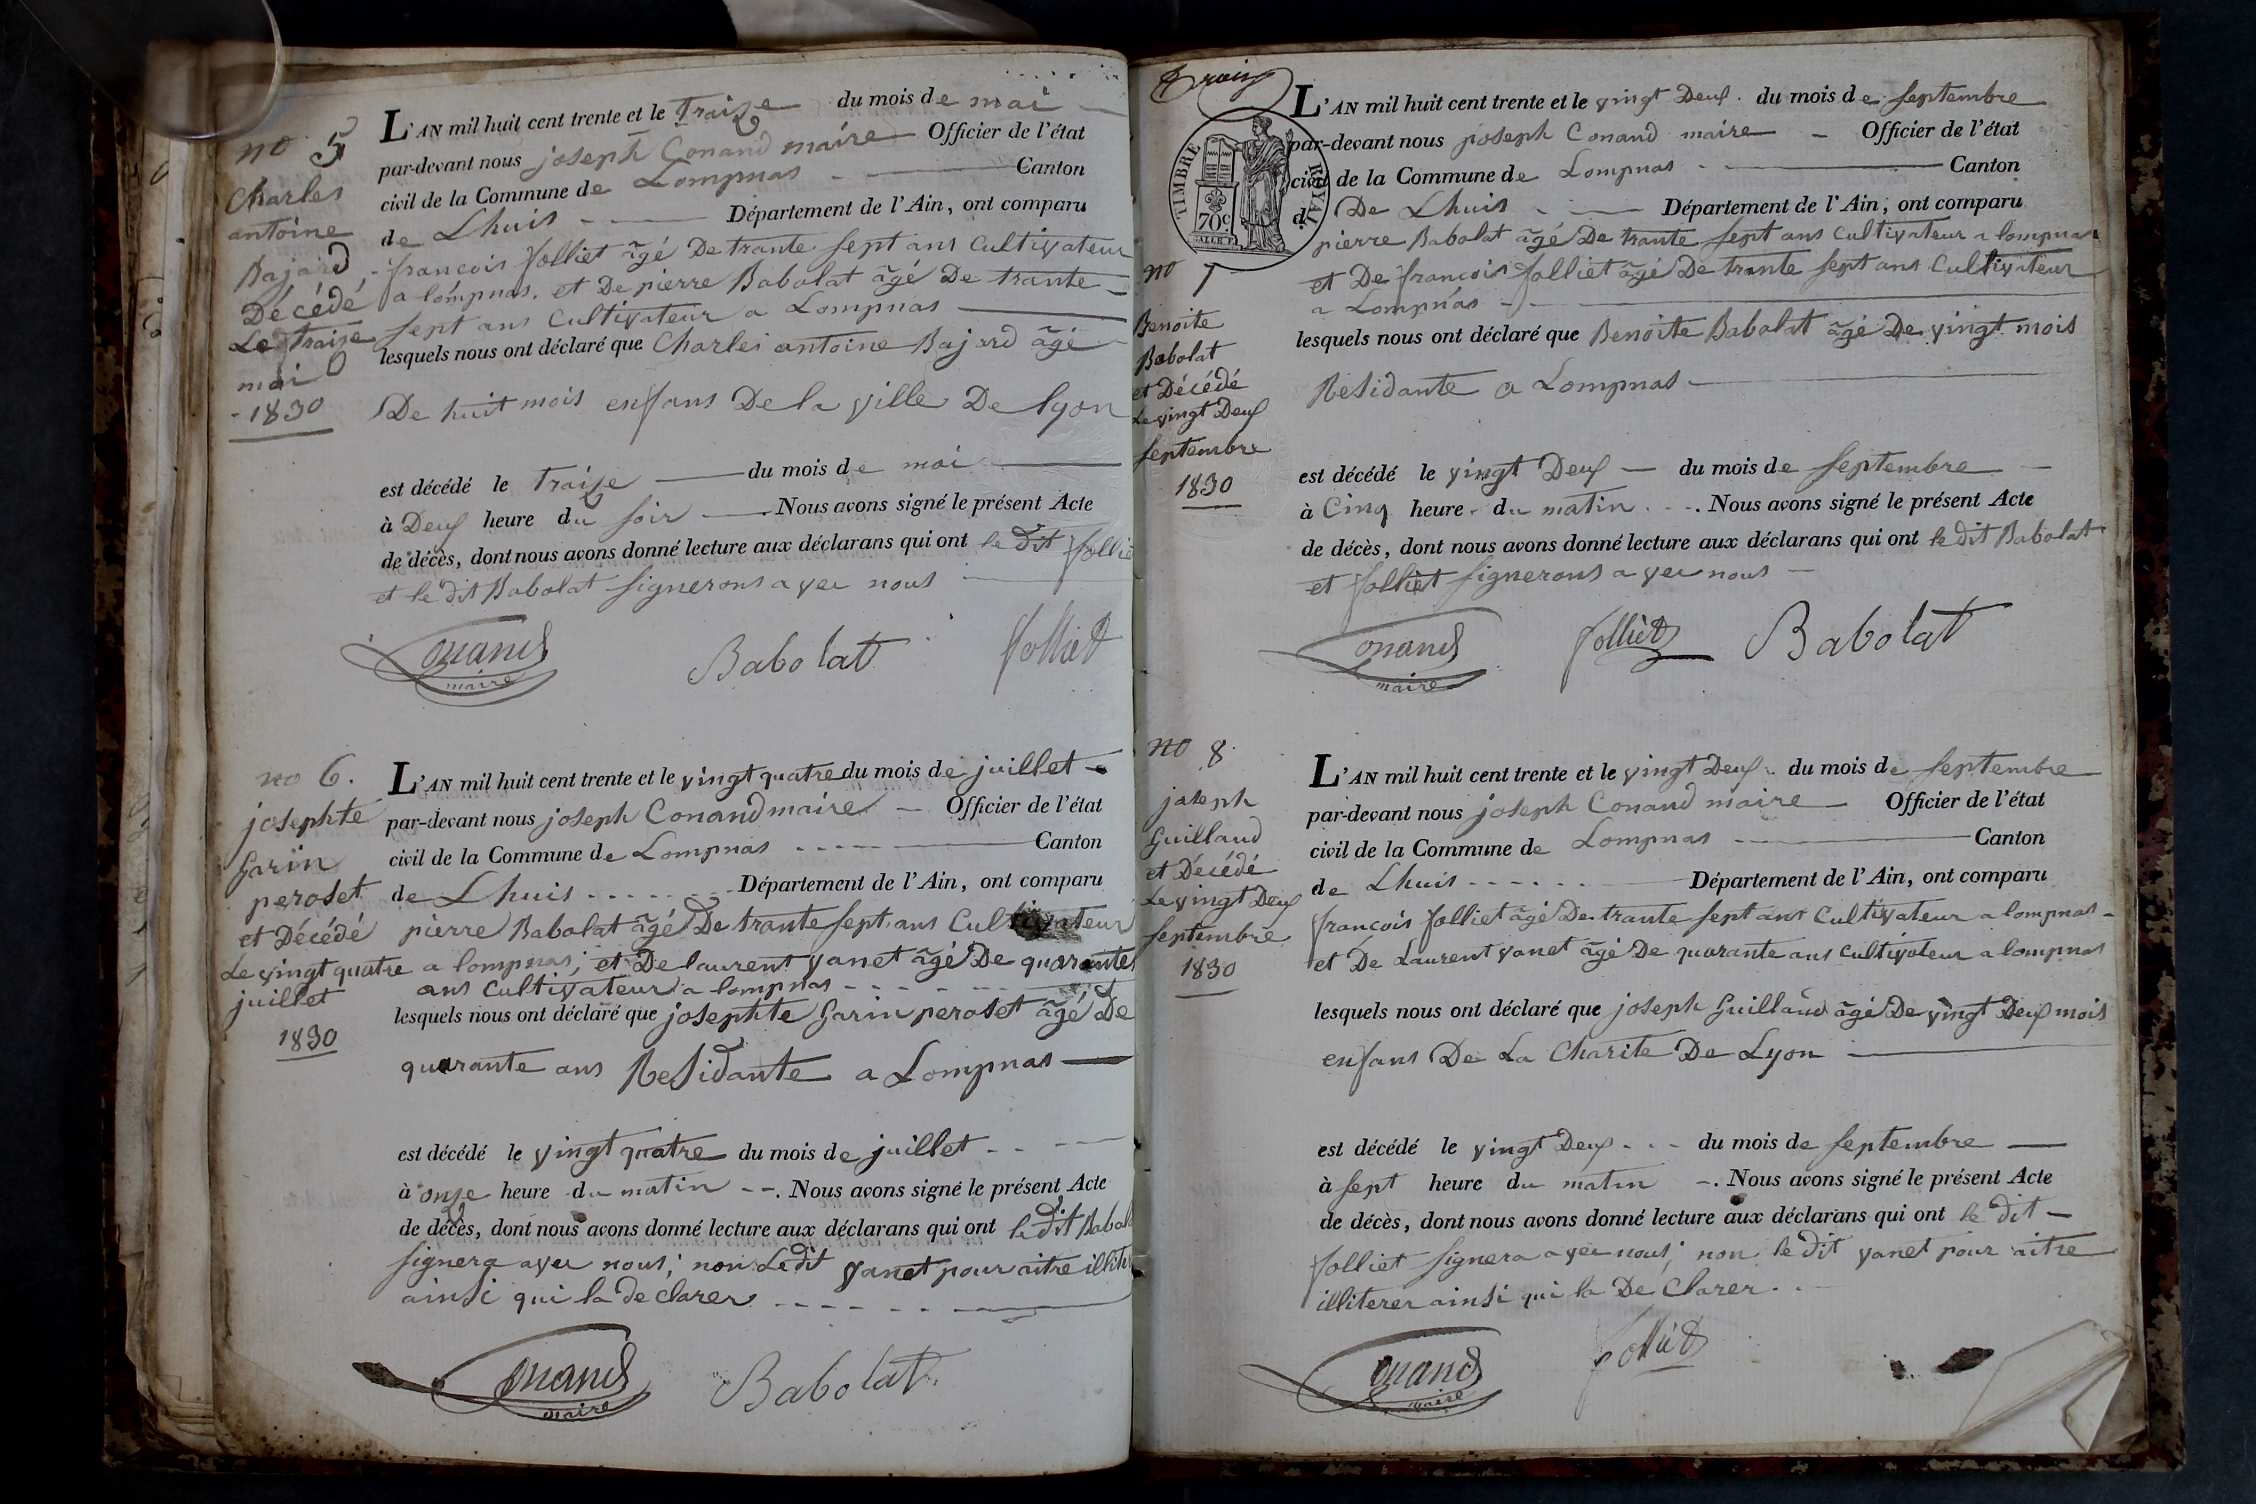 no 5
Charles
antoine
Bajard
Décédé
Le traize
mai
1830
L'AN mil huit cent trente et le traize du mois de mai
par-devant nous joseph Conand maire Officier de l'état
civil de la Commune de Lompnas Canton
de Lhuis Département de l'Ain, ont comparu
francois folliet âgé De trante sept ans Cultivateur
a lompnas. et De pierre Babolat âgé De trante
sept ans Cultivateur a Lompnas
lesquels nous ont déclaré que Charles antoine Bajard âgé
De huit mois enfans De la ville De lyon
est décédé le traize du mois de mai
à Deux heure du soir Nous avons signé le présent Acte
de décès, dont nous avons donné lecture aux déclarans qui ont le dit follie
et le dit Babolat signerons avec nous
Conand
maire
Babolat
folliet
no 6.
josephte
Garin
peroset
et Décédé
Le vingt quatre
juillet
1830
L'AN mil huit cent trente et le vingt quatre du mois de juillet
par-devant nous joseph Conand maire Officier de l'état
civil de la Commune de Lompnas Canton
de Lhuis Département de l'Ain, ont comparu
pierre Babolat âgé De trante sept ans Cultivateur
a lompnas; et De laurent vanet âgé De quarantes
ans Cultivateur a lompnas
lesquels nous ont déclaré que josephte Garin peroset âgé De
quarante ans Residante a Lompnas
est décédé le vingt quatre du mois de juillet
à onze heure du matin. Nous avons signé le présent Acte
de décès, dont nous avons donné lecture aux déclarans qui ont le dit Babola
signera avec nous; non Ledit vanet pour aitre illite
ainsi qui la declarer
Conand
maire
Babolat
trois
TIMBRE ROYAL
70c
no 7
Benoite
Babolat
et Décédé
Le vingt Deux
septembre
1830
L'AN mil huit cent trente et le vingt Deux du mois de septembre
par-devant nous joseph Conand maire Officier de l'état
civil de la Commune de Lompnas Canton
d De Lhuis Département de l'Ain, ont comparu
pierre Babolat âgé De trante sept ans Cultivateur a lompnas
et De francois folliet âgé De trante sept ans Cultivateur
a Lompnas
lesquels nous ont déclaré que Benoite Babolat âgé De vingt mois
Residante a Lompnas
est décédé le vingt Deux du mois de septembre
à Cinq heure du matin. Nous avons signé le présent Acte
de décès, dont nous avons donné lecture aux déclarans qui ont le dit Babolat
et folliet signerons avec nous
Conand
maire
folliet
Babolat
no 8
joseph
Guilland
et Décédé
Le vingt Deux
septembre
1830
L'AN mil huit cent trente et le vingt Deux du mois de septembre
par-devant nous joseph Conand maire Officier de l'état
civil de la Commune de Lompnas Canton
de Lhuis Département de l'Ain, ont comparu
francois folliet âgé De trante sept ans Cultivateur a lompnas
et De Laurent vanet âgé De quarante ans Cultivateur a lompnas
lesquels nous ont déclaré que joseph Guilland âgé De vingt Deux mois
enfans De La Charite De Lyon
est décédé le vingt Deux du mois de septembre
à sept heure du matin. Nous avons signé le présent Acte
de décès, dont nous avons donné lecture aux déclarans qui ont le dit
folliet signera avec nous; non le dit vanet pour aitre
illiterer ainsi qui la De Clarer.
Conand
maire
folliet